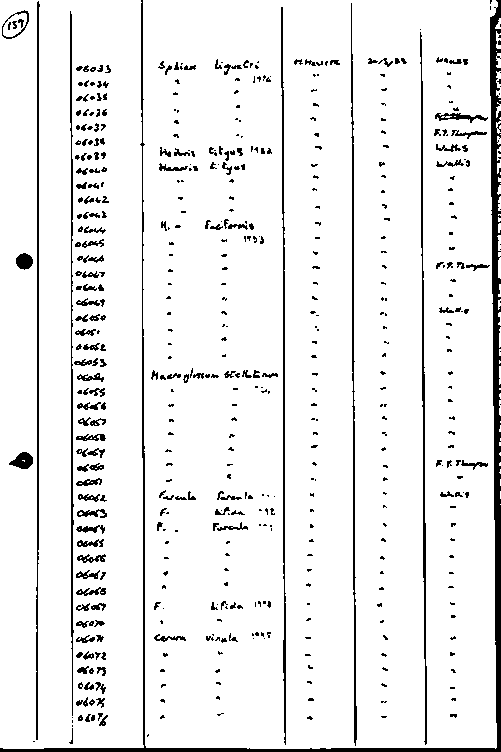 159
06033 Sphinx Ligustri M Harvey 20/3/83 Wallis
06034 " " 1976 " " "
06035 " " " " "
06036 " " " " F.P. Thompson
06037 " " " " F.P. Thompson
06038 " " " " Wallis
06039 Hemaris tityus 1982 " " Wallis
06040 Hemaris tityus " " "
06041 " " " " "
06042 " " " " "
06043 " " " " "
06044 H. - Fuciformis " " "
06045 " " 1983 " " "
06046 " " " " "
06047 " " " " F.P. Thompson
06048 " " " " "
06049 " " " " "
06050 " " " " Wallis
06051 " " " " "
06052 " " " " "
06053 " " " " "
06054 Macroglossum Stellatarum " " "
06055 " " " " "
06056 " " " " "
06057 " " " " "
06058 " " " " "
06059 " " " " "
06060 " " " " F.P. Thompson
06061 " " " " "
06062 Furcula furcula " " Wallis
06063 F. bifida " " "
06064 F. - Furcula " " "
06065 " " " " "
06066 " " " " "
06067 " " " " "
06068 " " " " "
06069 F. bifida " " "
06070 " " " " "
06071 Cerura vinula " " "
06072 " " " " "
06073 " " " " "
06074 " " " " "
06075 " " " " "
06076 " " " " "